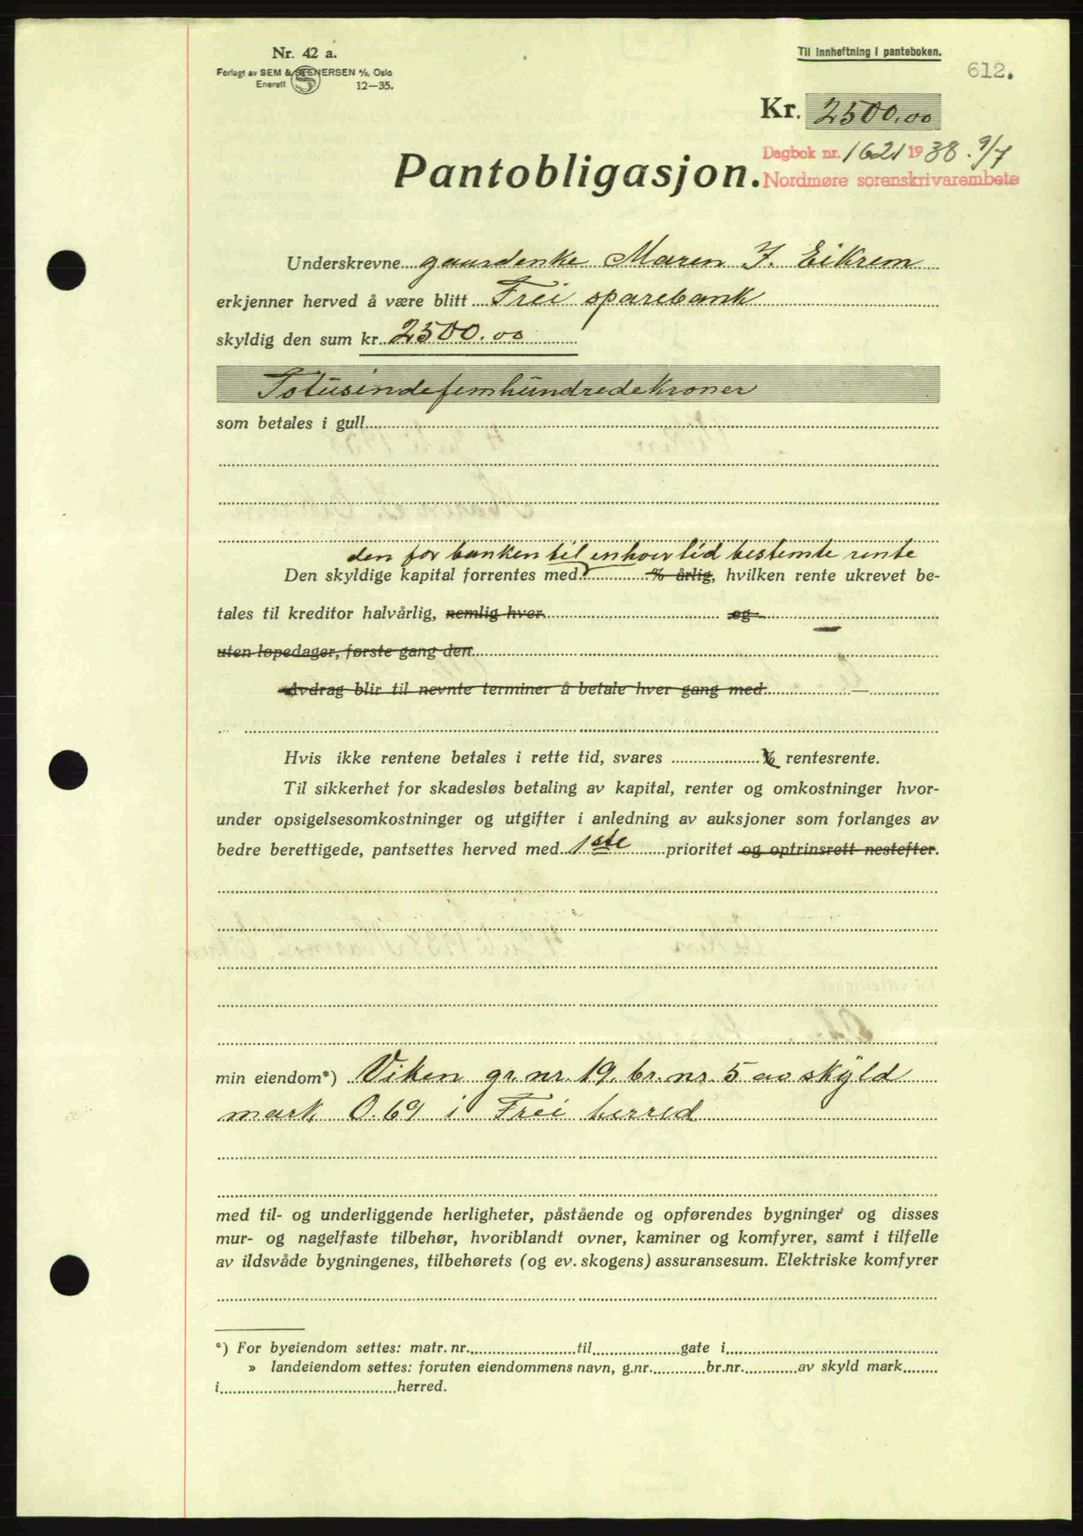 Nr. 42 a.
Forlagt av SEM & STENERSEN A/S, Oslo
Enerett 12—35.
Til innheftning i panteboken.
612.
Kr. 2500.00
Pantobligasjon.
Dagbok nr. 1621 1938. 9/7
Nordmøre sorenskrivarembete
Underskrevne gaardenke Maren J. Eikrem
erkjenner herved å være blitt Frei sparebank
skyldig den sum kr. 2500.00
Totusindefemhundredekroner
som betales i gull
den for banken til enhver tid bestemte rente
Den skyldige kapital forrentes med % årlig, hvilken rente ukrevet be-
tales til kreditor halvårlig, nemlig hver og
uten løpedager, første gang den
Avdrag blir til nevnte terminer å betale hver gang med
Hvis ikke rentene betales i rette tid, svares % rentesrente.
Til sikkerhet for skadesløs betaling av kapital, renter og omkostninger hvor-
under opsigelsesomkostninger og utgifter i anledning av auksjoner som forlanges av
bedre berettigede, pantsettes herved med 1ste prioritet og optrinsrett nestefter.
min eiendom*) Viken gr. nr. 19. br. nr. 5 av skyld
mark 0.69 i Frei herred
med til- og underliggende herligheter, påstående og opførendes bygninger og disses
mur- og nagelfaste tilbehør, hvoriblandt ovner, kaminer og komfyrer, samt i tilfelle
av ildsvåde bygningenes, tilbehørets (og ev. skogens) assuransesum. Elektriske komfyrer
*) For byeiendom settes: matr. nr. til gate i
» landeiendom settes: foruten eiendommens navn, g.nr. br.nr. av skyld mark
i herred.